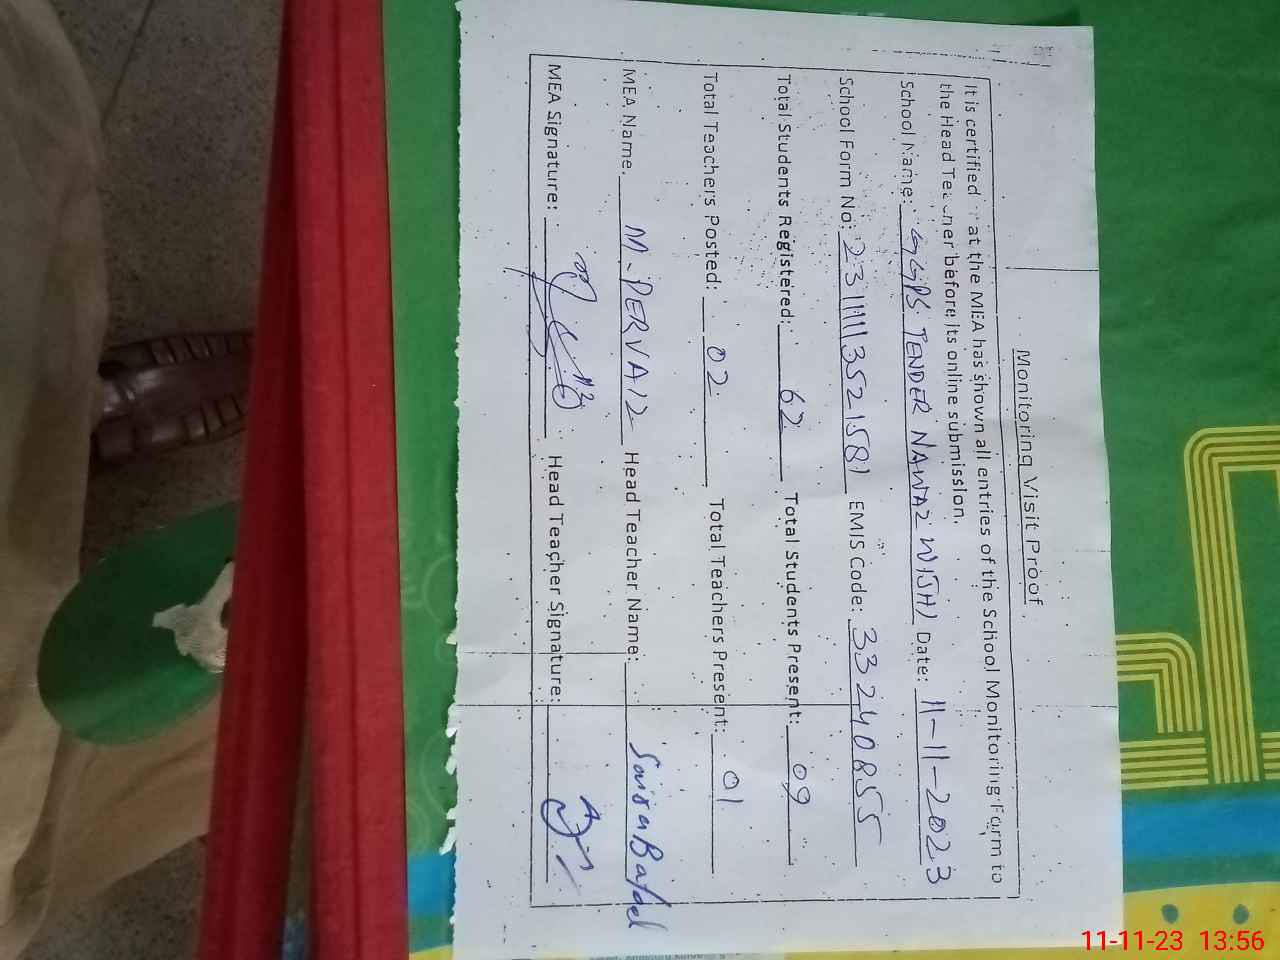 Monitoring Visit Proof
It is certified at the MEA has shown all entries of the School Monitoring Form to
the Head Teacher before its online submission.
School Name: GGPS TENDER NAWAZ WISHI Date: 11-11-2023
School Form No: 23111113521581 EMIS Code: 33240855
Total Students Registered: 62 Total Students Present: 09
Total Teachers Posted: 02 Total Teachers Present: 01
MEA Name. M. PERVAIZ Head Teacher Name:
MEA Signature: Head Teacher Signature:
11-11-23 13:56